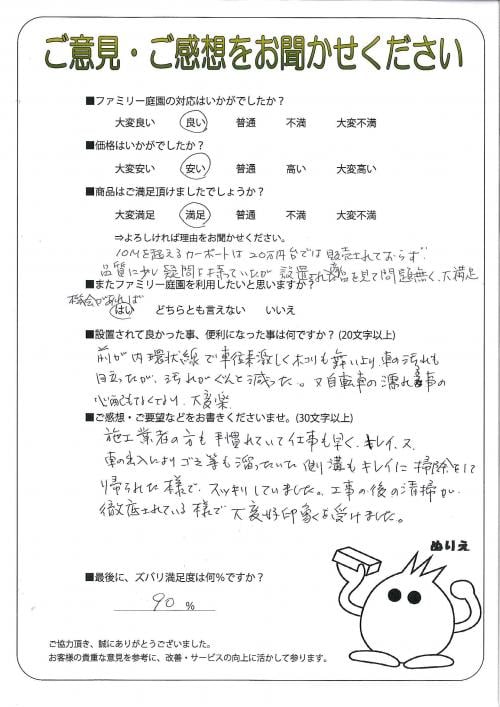 ご意見・ご感想をお聞かせください
■ファミリー庭園の対応はいかがでしたか？
大変良い 良い 普通 不満 大変不満
■価格はいかがでしたか？
大変安い 安い 普通 高い 大変高い
■商品はご満足頂けましたでしょうか？
大変満足 満足 普通 不満 大変不満
⇒よろしければ理由をお聞かせください。
10Mを超えるカーポートは20万円台では販売されておらず
品質に少し疑問を持っていたが設置され商品を見て問題無く、大満足
■またファミリー庭園を利用したいと思いますか？
機会があれば
はい どちらとも言えない いいえ
■設置されて良かった事、便利になった事は何ですか？(20文字以上)
前が内環状線で車往来激しくホコリも舞いより車の汚れも
目立ったが、汚れがぐんと減った。又自転車の濡れる事の
心配もなくなり、大変楽
■ご感想・ご要望などをお書きくださいませ。(30文字以上)
施工業者の方も手慣れていて仕事も早く、キレイ、又
車の出入によりゴミ等も溜っていた側溝もキレイに掃除をして
帰られた様で、スッキリしていました。工事の後の清掃が
徹底されている様で大変好印象を受けました。
ぬりえ
■最後に、ズバリ満足度は何%ですか？
90 %
ご協力頂き、誠にありがとうございました。
お客様の貴重な意見を参考に、改善・サービスの向上に活かして参ります。